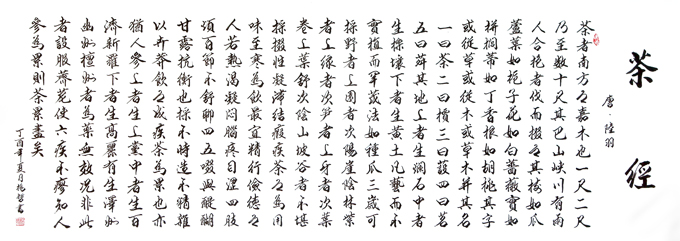 茶經
唐·陸羽
茶者南方之嘉木也一尺二尺
乃至數十尺其巴山峽川有兩
人合抱者伐而掇之其樹如瓜
蘆葉如梔子花如白薔薇實如
栟櫚蒂如丁香根如胡桃其字
或從草或從木或草木并其名
一曰茶二曰檟三曰蔎四曰茗
五曰荈其地上者生爛石中者
生櫟壤下者生黃土凡藝而不
實植而罕茂法如種瓜三歲可
採野者上園者次陽崖陰林紫
者上綠者次笋者上牙者次葉
卷上葉舒次陰山坡谷者不堪
採掇性凝滯結瘕疾茶之為用
味至寒為飲最宜精行儉德之
人若熱渴凝悶腦疼目澀四肢
煩百節不舒聊四五啜與醍醐
甘露抗衡也採不時造不精雜
以卉莽飲之成疾茶為累也亦
猶人參上者生上黨中者生百
濟新羅下者生高麗有生澤州
幽州檀州者為藥無效況非此
者設服薺苨使六疾不瘳知人
參為累則茶累盡矣
丁酉年夏月楊哲書